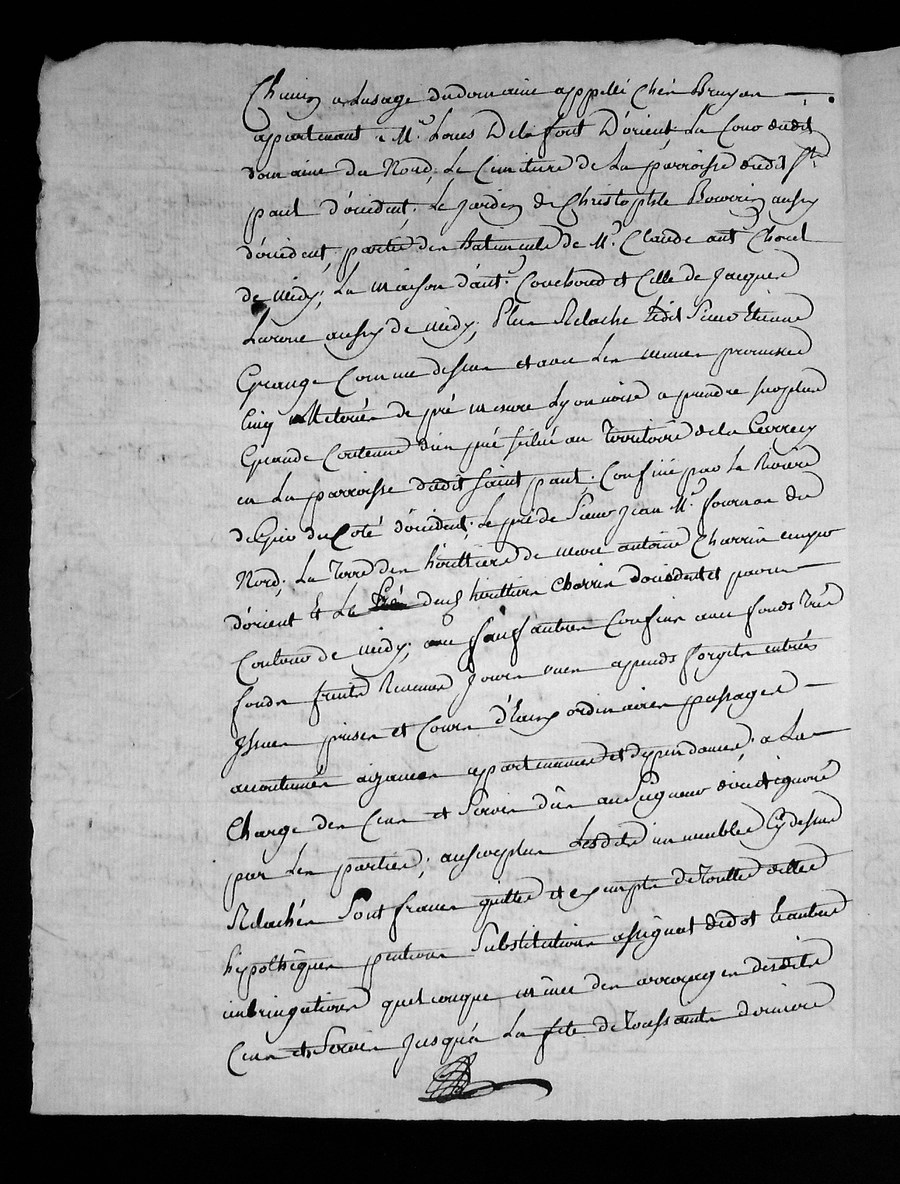 Chemin a Lusage dudomaine appellé Chés Bruyan
appartenant a Mr. Louis Delafont D'orient La Cour dudit
domaine du Nord; Le Cimitiere de La parroisse dudit St
paul d'occident; Le Jardin de Christophle Bowrin aussy
d'occident, partie des Batiments de Mr. Claude ant. Chorel
de midy; La maison d'ant. Couchoud et Celle de Jacques
Laroue aussy de midy; Plus Relache Ledit Sieur Etienne
Grange Comme dessus et avec Les mêmes promisses
Cinq Meterées de pré mesure Lyonnoise a prendre surplus
Grande Contenue d'un pré scitué au Territoire de la
en La parroisse dudit Saint paul; Confiné par La Riviere
de Gier du Coté d'occident; Le pré de Sieur Jean M. fournas du
Nord; La Terre des héritiers de mere antoine Charrin
d'orient Et Le Prés desd héritiers Charrin d'occident et
de midy; Sauf autres Confins avec fonds Trés
fonds fruits Revenus Jours vues apends forgets entrées
Issues prises et Cours d'Eaux ordinaires passages
accoutumés aizances appartenances et dépendances; a La
Charge des Cens et Servis dûs au Seigneur direct ignoré
par Les parties; au surplus Lesdits immeubles Cy dessus
Relachés Sont francs quittes et exempts de Touttes dettes
hypothèques pentions Substitutions assignat de dot Et autres
imbringations quelconque même des arrerages desdits
Cens et Servis Jusqu'a La fête de Toussaints derniere